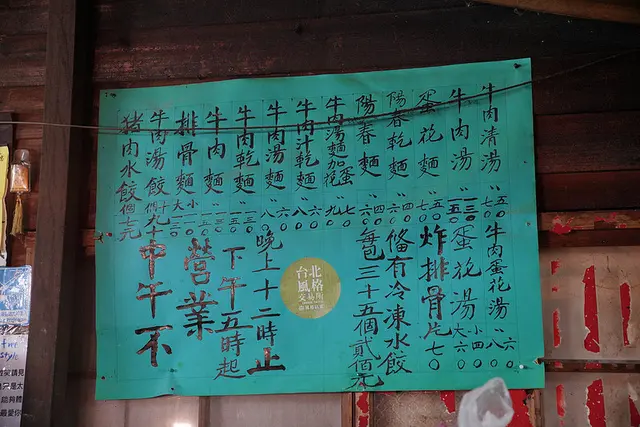 牛肉清湯 〃 五〇 七〇
牛肉湯 〃
蛋花麵 〃 五〇 七〇
陽春乾麵 〃 四〇 六〇
陽春麵 〃 四〇 六〇
牛肉湯麵加蛋 七〇 九〇
牛肉汁乾麵 〃 六〇 八〇
牛肉湯麵 〃 六〇 八〇
牛肉乾麵 〃
牛肉麵 〃
排骨麵 小 大
牛肉湯餃十個九十
豬肉水餃個七元
牛肉蛋花湯 〃 六〇 八〇
蛋花湯 小四〇 大六〇
炸排骨片七〇
備有冷凍水餃
每包三十五個貳佰元
晚上十二時止
下午五時起
營業
中午不
台北
風格
交易所